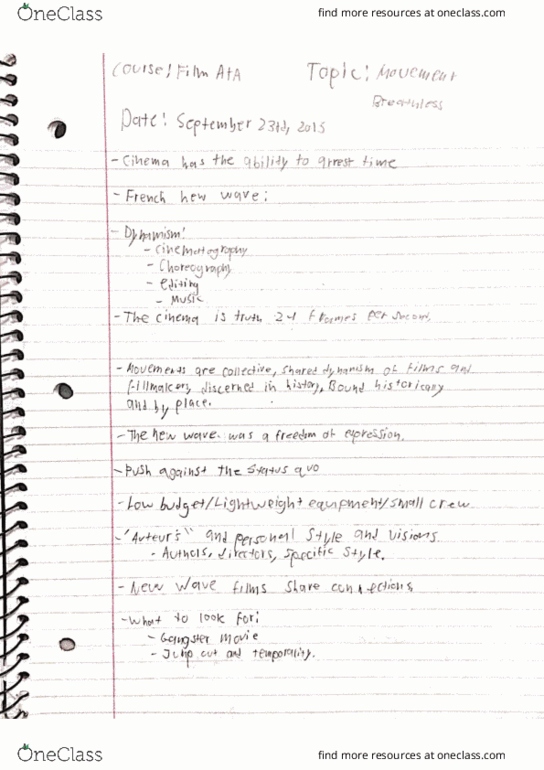 OneClass find more resources at oneclass.com
Course: Film AtA Topic: Movement
Breathless
Date: September 23rd, 2015
- Cinema has the ability to arrest time
- French new wave:
- Dynamism:
- Cinematography
- Choreography
- editing
- Music
- The cinema is truth 24 frames per second.
- Movements are collective, shared dynamism of films and
fillmakers, discerned in history, Bound historicaly
and by place.
- The new wave was a freedom of expression.
- Push against the status quo
- Low budget/Lightweight equipment/small crew
- "Auteurs" and personal style and visions
- Authors, directors, specific style.
- New Wave films share connections
- What to look for:
- Gangster movie
- Jump cut and temporality.
OneClass find more resources at oneclass.com